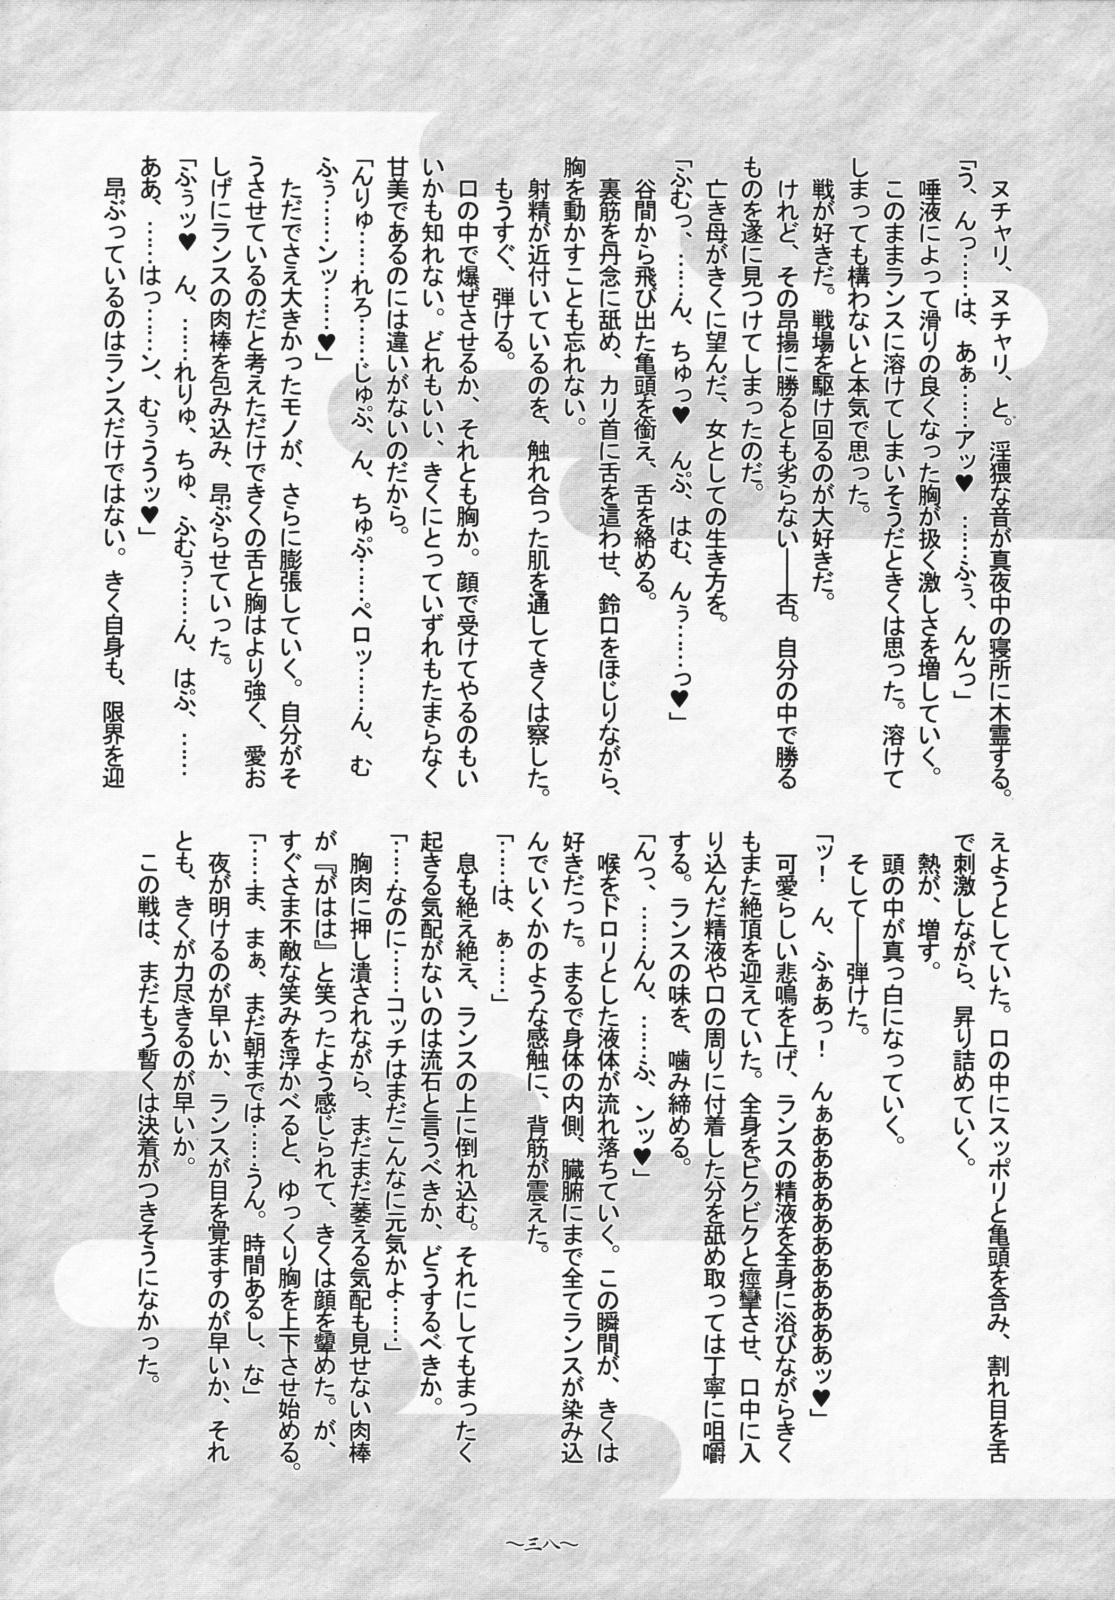 ヌチャリ、ヌチャリ、と。淫猥な音が真夜中の寝所に木霊する。
「う、んっ……は、あぁ……アッ♥　……ふぅ、んんっ」
　唾液によって滑りの良くなった胸が扱く激しさを増していく。
　このままランスに溶けてしまいそうだときくは思った。溶けて
しまっても構わないと本気で思った。
　戦が好きだ。戦場を駆け回るのが大好きだ。
　けれど、その昂揚に勝るとも劣らない――否。自分の中で勝る
ものを遂に見つけてしまったのだ。
　亡き母がきくに望んだ、女としての生き方を。
「ふむっ、……ん、ちゅっ♥　んぷ、はむ、んぅ……っ♥」
　谷間から飛び出た亀頭を銜え、舌を絡める。
　裏筋を丹念に舐め、カリ首に舌を這わせ、鈴口をほじりながら、
胸を動かすことも忘れない。
　射精が近付いているのを、触れ合った肌を通してきくは察した。
　もうすぐ、弾ける。
　口の中で爆ぜさせるか、それとも胸か。顔で受けてやるのもい
いかも知れない。どれもいい、きくにとっていずれもたまらなく
甘美であるのには違いがないのだから。
「んりゅ……れろ……じゅぷ、ん、ちゅぷ……ペロッ……ん、む
ふぅ……ンッ……♥」
　ただでさえ大きかったモノが、さらに膨張していく。自分がそ
うさせているのだと考えただけできくの舌と胸はより強く、愛お
しげにランスの肉棒を包み込み、昂ぶらせていった。
「ふぅッ♥　ん、……れりゅ、ちゅ、ふむぅ……ん、はぷ、……
ああ、……はっ……ン、むぅううッ♥」
　昂ぶっているのはランスだけではない。きく自身も、限界を迎
えようとしていた。口の中にスッポリと亀頭を含み、割れ目を舌
で刺激しながら、昇り詰めていく。
　熱が、増す。
　頭の中が真っ白になっていく。
　そして――弾けた。
「ッ！　ん、ふぁあっ！　んぁああああああああああッ♥」
　可愛らしい悲鳴を上げ、ランスの精液を全身に浴びながらきく
もまた絶頂を迎えていた。全身をビクビクと痙攣させ、口中に入
り込んだ精液や口の周りに付着した分を舐め取っては丁寧に咀嚼
する。ランスの味を、噛み締める。
「んっ、……んん、……ふ、ンッ♥」
　喉をドロリとした液体が流れ落ちていく。この瞬間が、きくは
好きだった。まるで身体の内側、臓腑にまで全てランスが染み込
んでいくかのような感触に、背筋が震えた。
「……は、ぁ……」
　息も絶え絶え、ランスの上に倒れ込む。それにしてもまったく
起きる気配がないのは流石と言うべきか、どうするべきか。
「……なのに……コッチはまだこんなに元気かよ……」
　胸肉に押し潰されながら、まだまだ萎える気配も見せない肉棒
が『がはは』と笑ったよう感じられて、きくは顔を顰めた。が、
すぐさま不敵な笑みを浮かべると、ゆっくり胸を上下させ始める。
「……ま、まぁ、まだ朝までは……うん。時間あるし、な」
　夜が明けるのが早いか、ランスが目を覚ますのが早いか、それ
とも、きくが力尽きるのが早いか。
　この戦は、まだもう暫くは決着がつきそうになかった。
～三八～